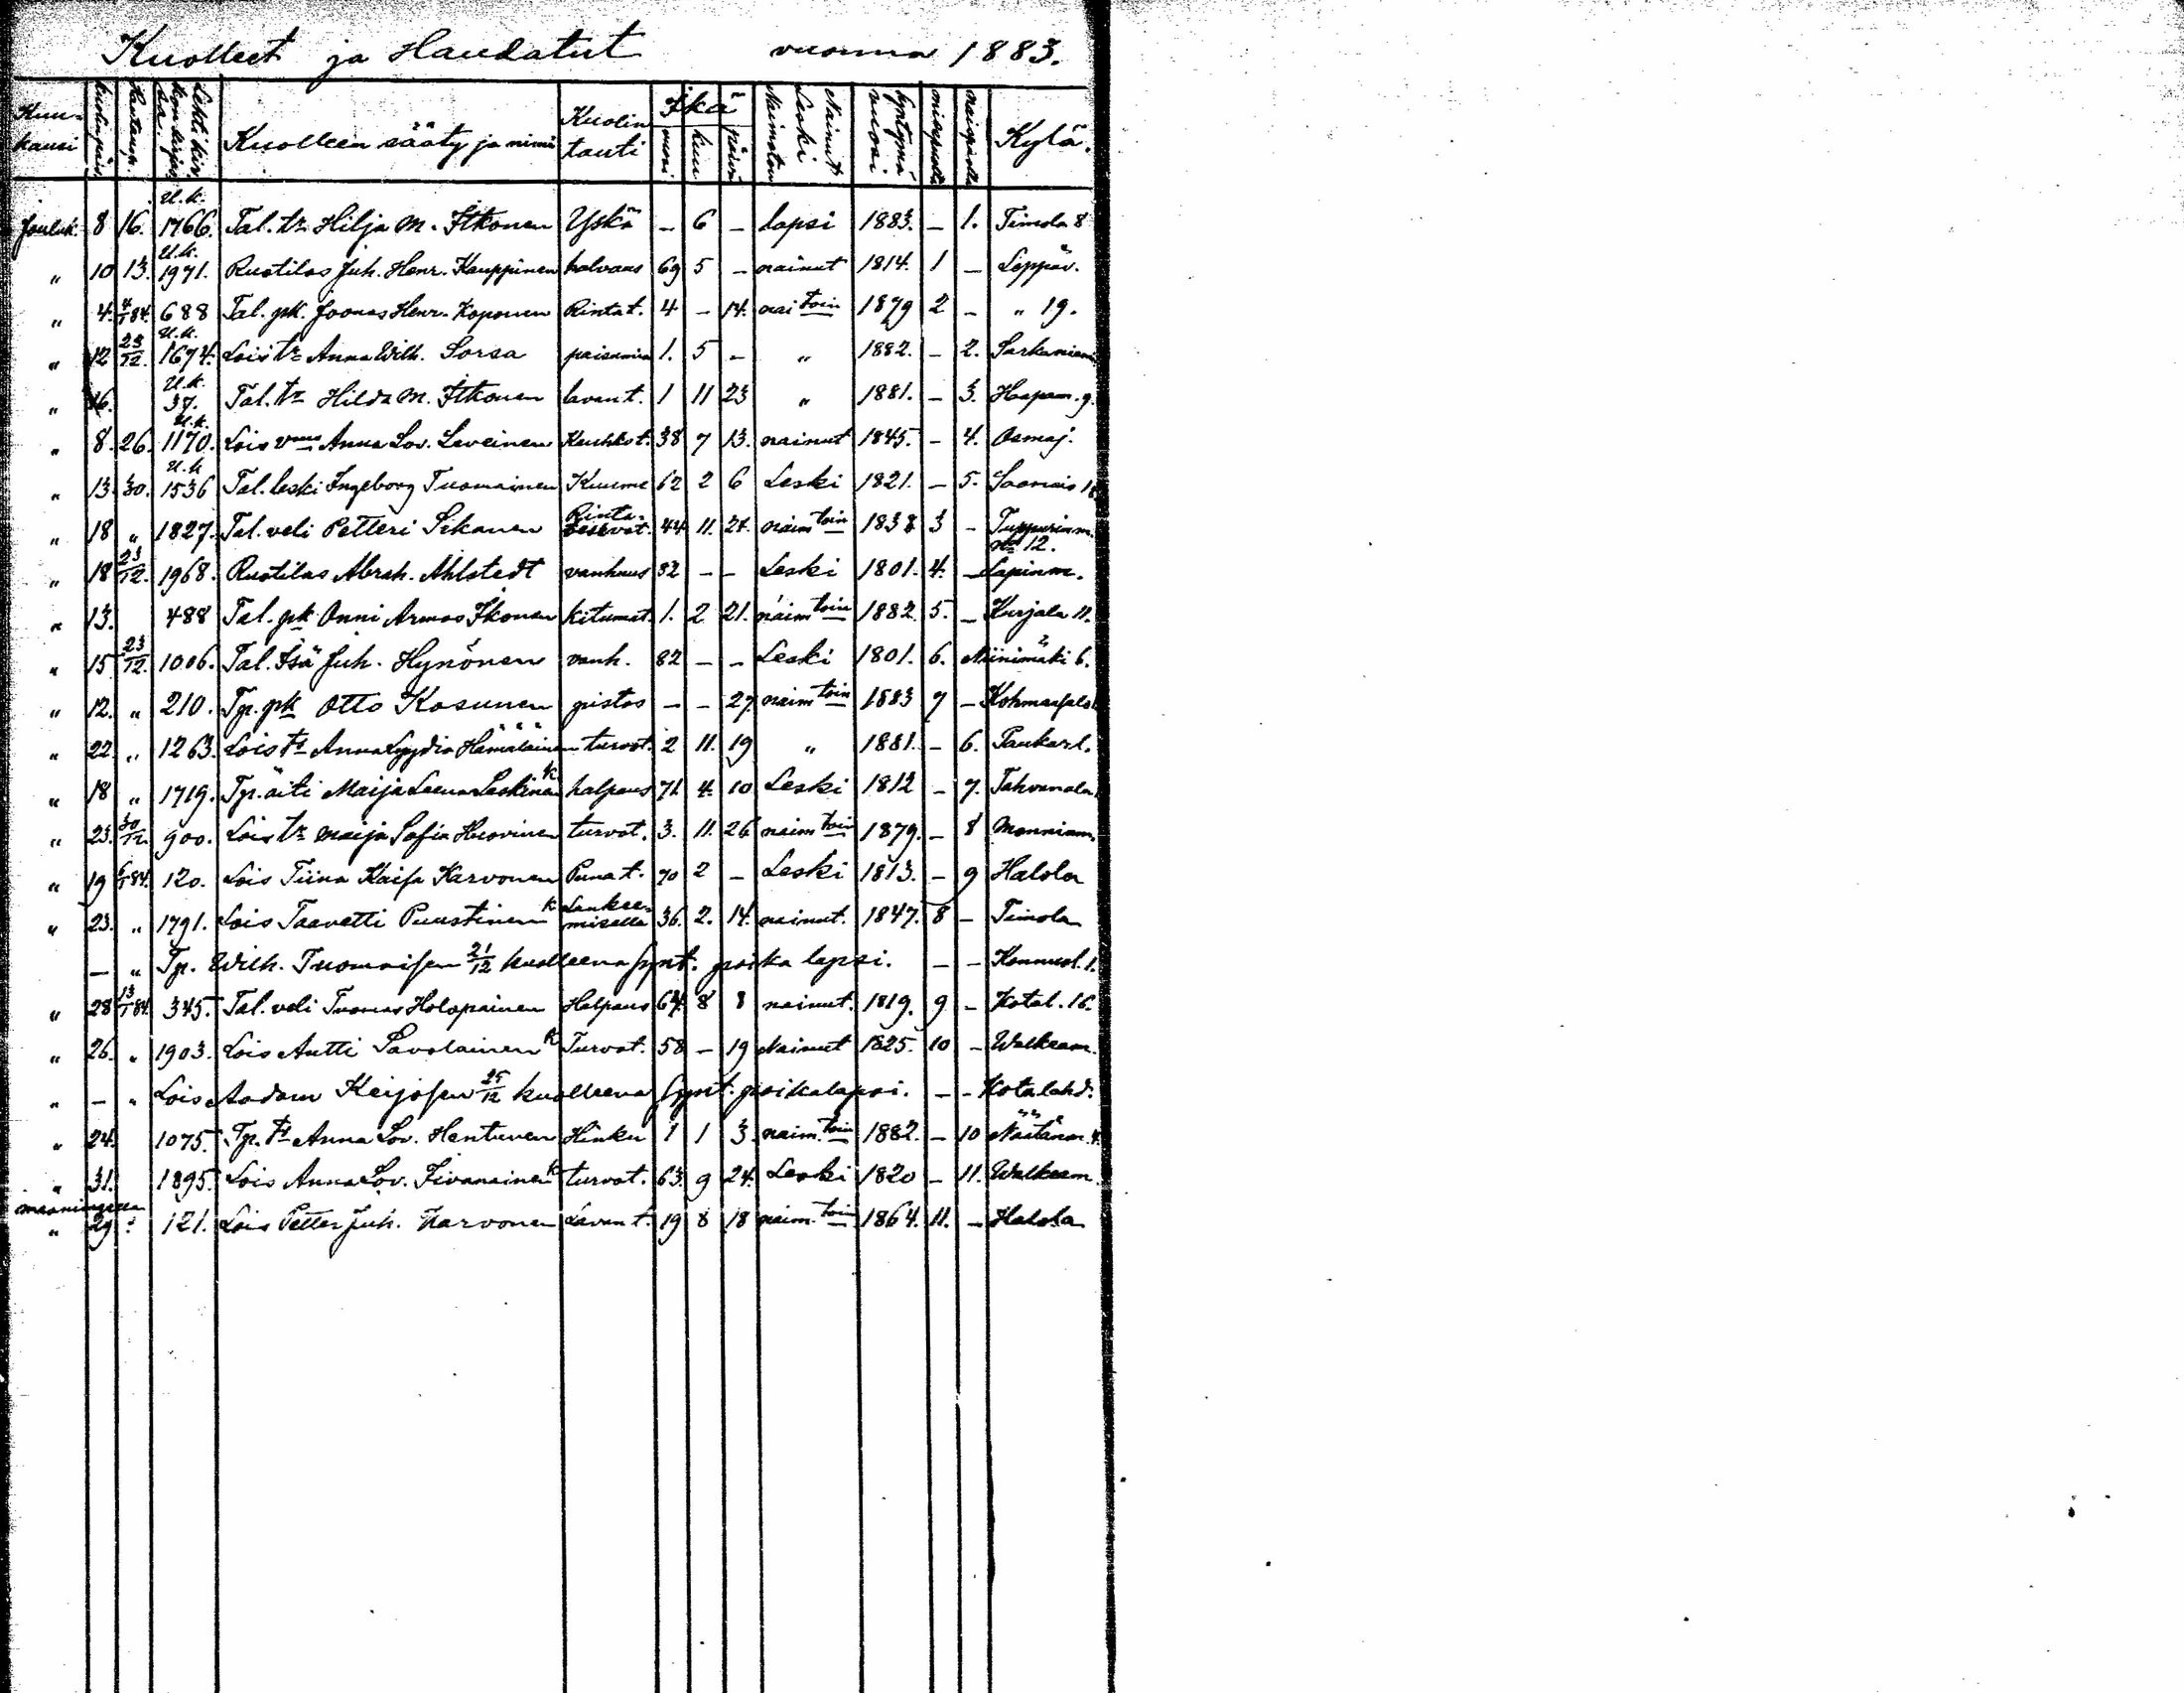 Kuolleet ja Haudatut vuonna 1883.
Kuu-kausi Kuolinpäivä Hautauspäivä Lehti kirkonkirjassa Kuolleen sääty ja nimi Kuolin tauti Ikä vuosi kuu päivä Nainut Leski Naimaton Syntymä vuosi miespuoli naispuoli Kylä.
Jouluk. 8 16. U.k. 1766. Tal. tr Hilja M. Itkonen Yskä - 6 - lapsi 1883. - 1. Timola 8
" 10 13. U.k. 1971. Ruotilas Juh. Henr. Kauppinen halvaus 69 5 - nainut 1814. 1 - Leppäv.
" 4. 4/1 84. 688 Tal. pk. Joonas Henr. Koponen Rintat. 4 - 14. nai toin 1879 2 - " 19.
" 12 23/12. U.k. 1674. Lois tr Anna Wilh. Sorsa paisumia 1. 5 - " 1882. - 2. Sarkaniemi
" 16. U.k. 37. Tal. tr Hilda M. Itkonen lavant. 1 11 23 " 1881. - 3. Haapam. 9.
" 8. 26. U.k. 1170. Lois vmo Anna Lov. Leveinen Keuhkot. 38 7 13. nainut 1845. - 4. Osmaj.
" 13. 30. U.k 1536 Tal. leski Ingeborg Tuomainen Kuume 62 2 6 Leski 1821. - 5. Saamais 18
" 18 " 1827. Tal. veli Petteri Sikanen Rinta- 44 11. 24. naim toin 1838 3 - Tuppurinm. No 12.
" 18 23/12. 1968. Ruotilas Abrah. Ahlstedt vanhuus 82 - - Leski 1801. 4. - Lapinm.
" 13. 488 Tal. pk Onni Armas Ikonen kitumat. 1. 2 21. naim toin 1882. 5. - Kurjala 11.
" 15 23/12. 1006. Tal. Isä Juh. Hynönen vanh. 82 - - Leski 1801. 6. Niinimäki 6.
" 12. " 210. Tp. pk Otto Kosunen pistos - - 27. naim toin 1883 7 - Kohmansalo
" 22. " 1263. Lois tr Anna Lyydia Hämäläinen turvot. 2 11. 19 " 1881. - 6. Paukarl.
" 18 " 1719. Tp. äiti Maija Leena Leskinen K halpaus 71 4. 10 Leski 1812 - 7. Tahvanala.
" 23. 30/12. 900. Lois tr Maija Sofia Huovinen turvot. 3. 11. 26 naim toin 1879. - 8 Monninm.
" 19 6/1 84. 120. Lois Tiina Kaisa Karvonen Punat. 70 2 - Leski 1813. - 9 Halola
" 23. " 1791. Lois Taavetti Puustinen K Lankee-misella 36. 2. 14. nainut. 1847. 8 - Timola
- " Tp. Wilh. Tuomaisen 21/12 kuolleena synt. poika lapsi. - - Konnusl. 1.
" 28 13/1 84. 345. Tal. veli Tuomas Holopainen Halpaus 64. 8 8 nainut. 1819. 9 - Kotal. 16.
" 26. " 1903. Lois Antti Savolainen K Turvot. 58 - 19 Nainut 1825. 10 - Walkeam.
" - " Lois Aadam Keijosen 25/12 kuolleena synt. poikalapsi. - - Kotalahd.
" 24. 1075. Tp. tr Anna Lov. Hentunen Hinku 1 1 3. naim. toin 1882. - 10 Näätänm. 4.
" 31. 1895. Lois Anna Lov. Tivanainen K turvot. 63. 9 24. Leski 1820 - 11. Walkeam.
maaningalla
" 29 " 121. Lois Petter Juh. Karvonen Lavant. 19 8 18 naim. toin 1864. 11. - Halola